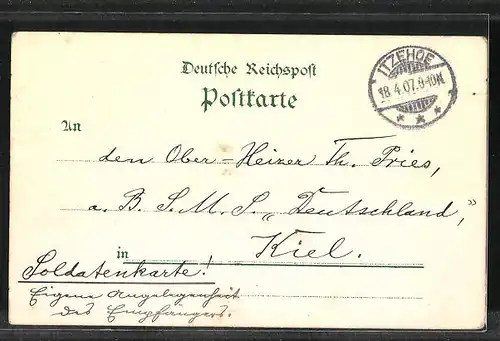 Deutsche Reichspost
Postkarte
ITZEHOE
18.4.07.8-10N
An
den Ober-Heizer Th. Pries,
a. B. S. M. S. „Deutschland,"
in Kiel.
Soldatenkarte!
Eigene Angelegenheit
des Empfängers.